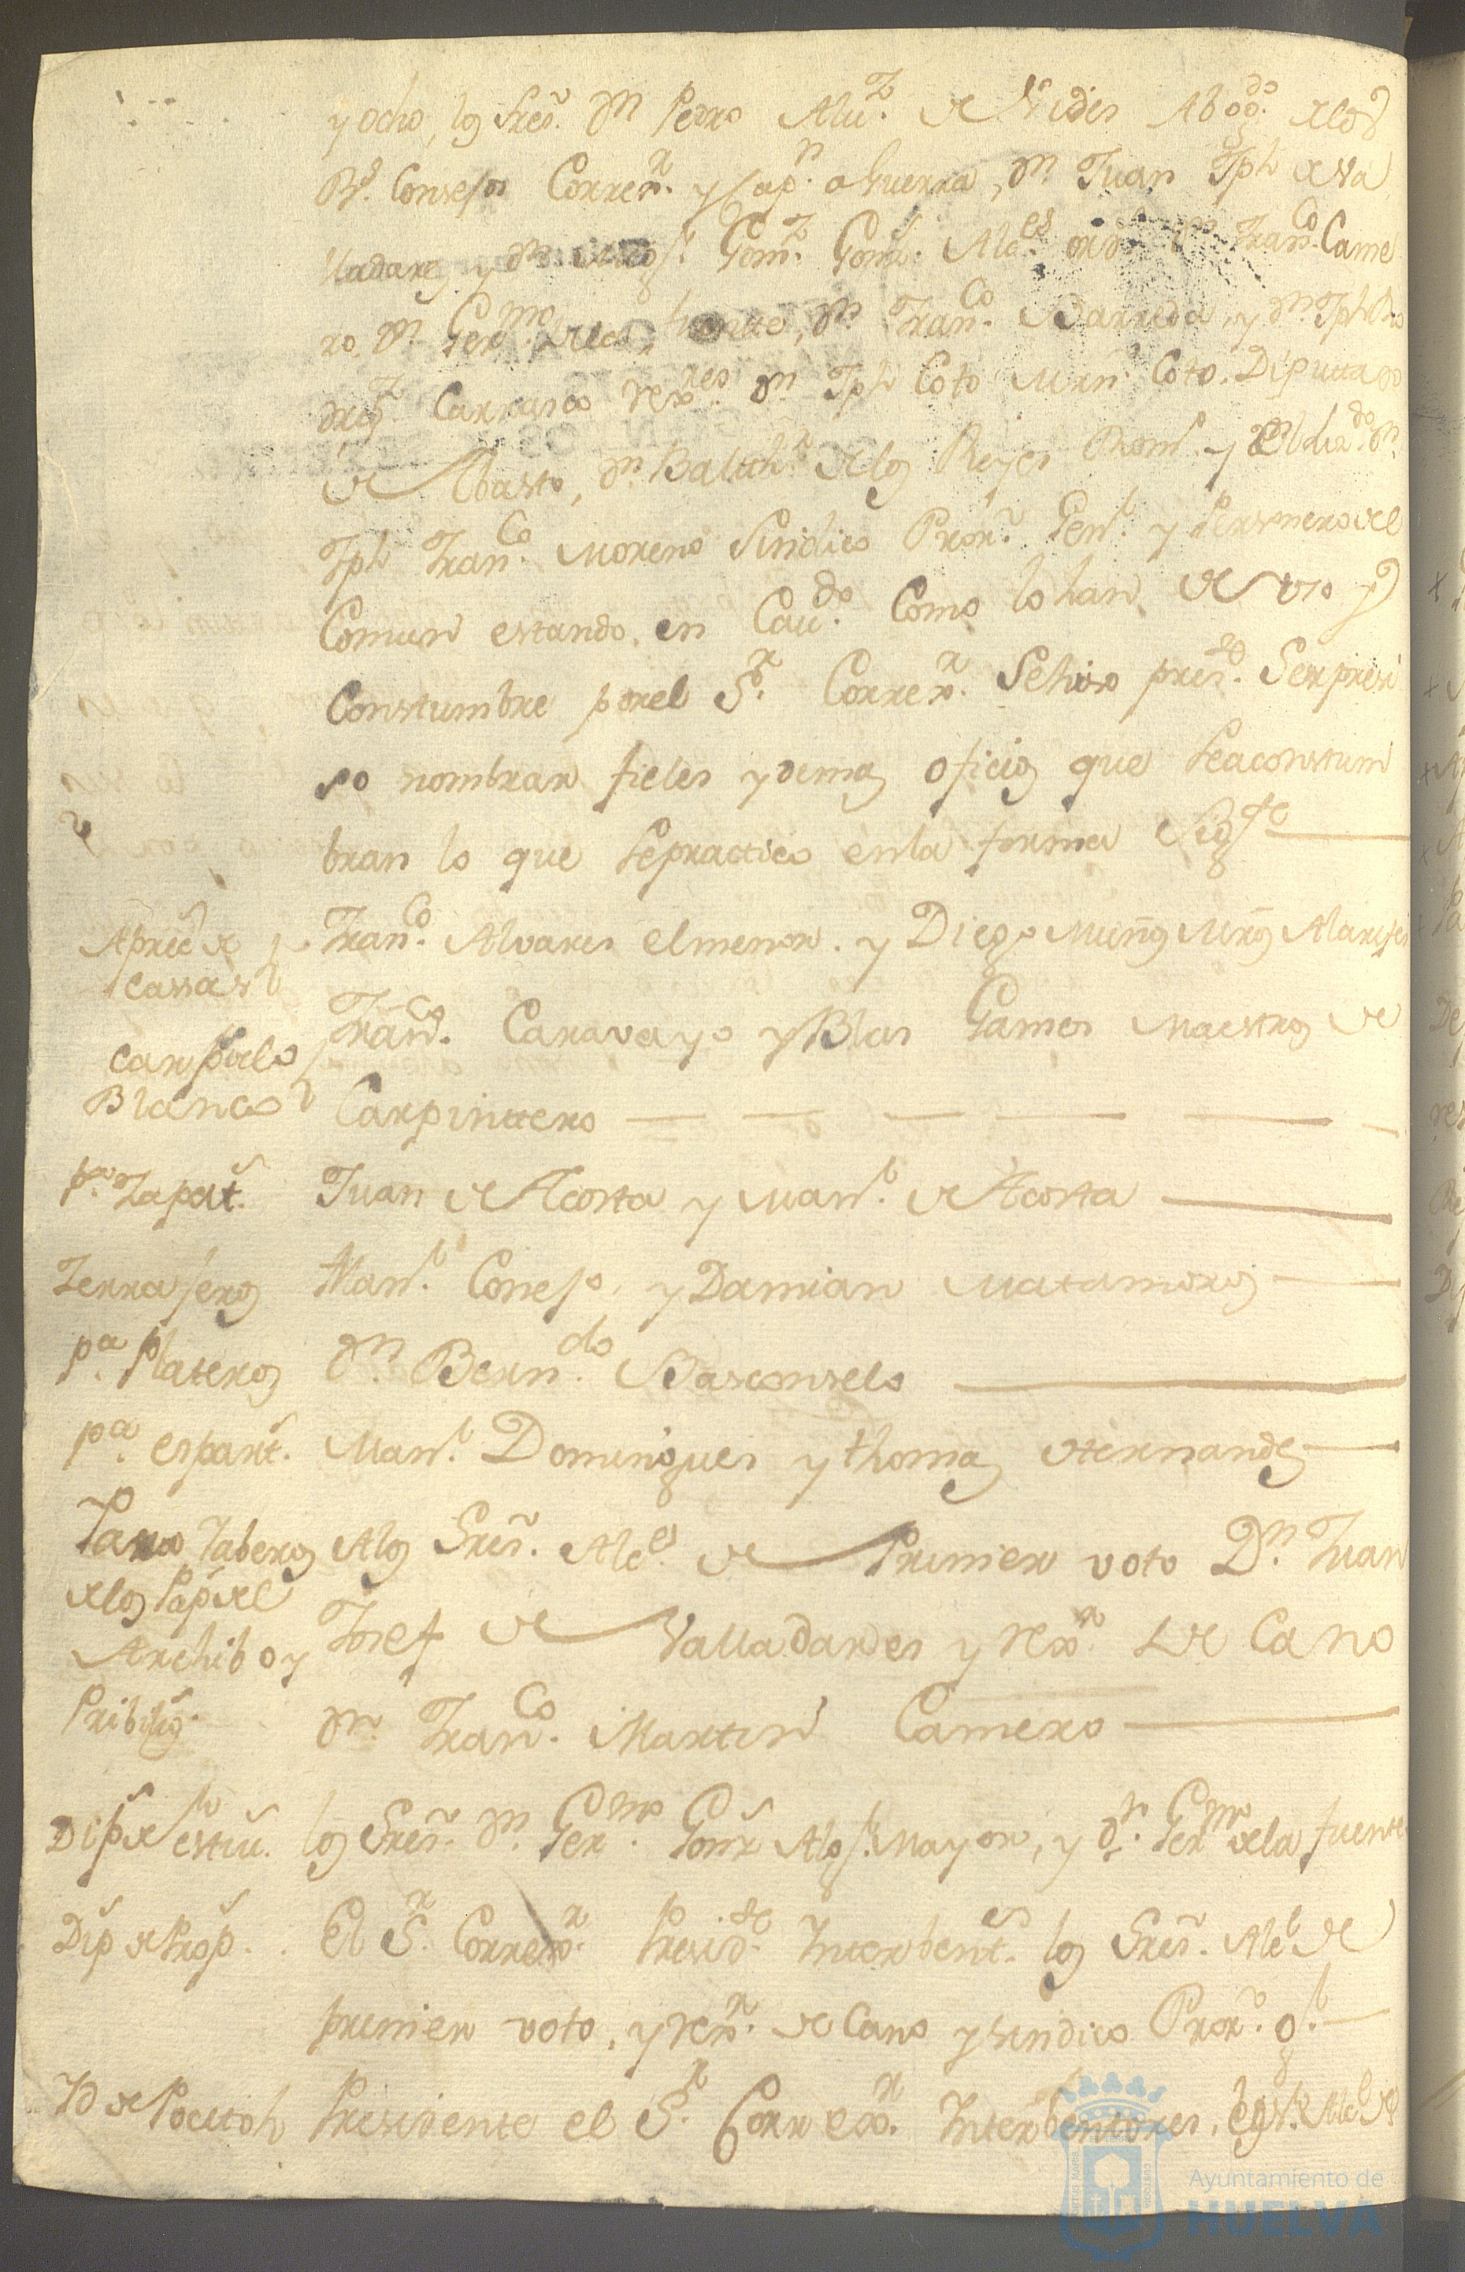 y ocho, los Sres. Dn. Pedro Aluz. de Vides Abogdo. de los
Rs. Consejos Correxr. y Capn. a Guerra, Dn. Juan Jph de Va
lladares y Dn. Gomz. Alces. ordins. Dn. Franco. Came
ro, Dn. Germo. de la fuente, Dn. Franco. Barreda, y Dn. Jph Ro
drigz. Carrasco rexres. Dn. Jph Coto Mrn. Coto. Diputado
de Abasto, Dn. Balthr. de los Reyes Dn.
Jph Franco. Moreno Sindico Pror. Genl. y Personero del
Comun estando en Caudo. Como lo han de uso y
Constumbre por el Sr. Correxr. Se hizo preste. Ser presi
so nombrar fieles y demas oficios que se aconstum
bran lo que se practico en la forma Sigte
Apreds. de
casas
Franco. Alvares el menor. y Diego Muños Mros Alarifes
carps. de lo
Blanco
Franco. Caravayo y Blas Games Maestros de
Carpintero
pa. Zapat. Juan de Acosta y Manl. de Acosta
Zerrajeros Manl. Conejo, y Damian Matamoros
pa. plateros Dn. Berndo. Basconselo
pa. espart. Manl. Domingues y thomas Hernandes
Alos Sres. Alces. de Primer voto Dn. Juan
de los Paps. del
Archibo y Josef de Valladares y rexr. de Cano
Pribilegs. Dn. Franco. Martin Camero
Dips. de los Sres. Dn. Germo. Gonz. Mayor, y Dn. Germo. de la fuente
Dips. de Props. El Sr. Correxr. Preside. Interbents. los Sres. Alcl. de
primer voto, y rexr. de Cano y sindico Pror. gl.
Yd de Pocitoh Presidente el Sr. Correxr. Interbentores, los Alcl. de
Ayuntamiento de
HUELVA